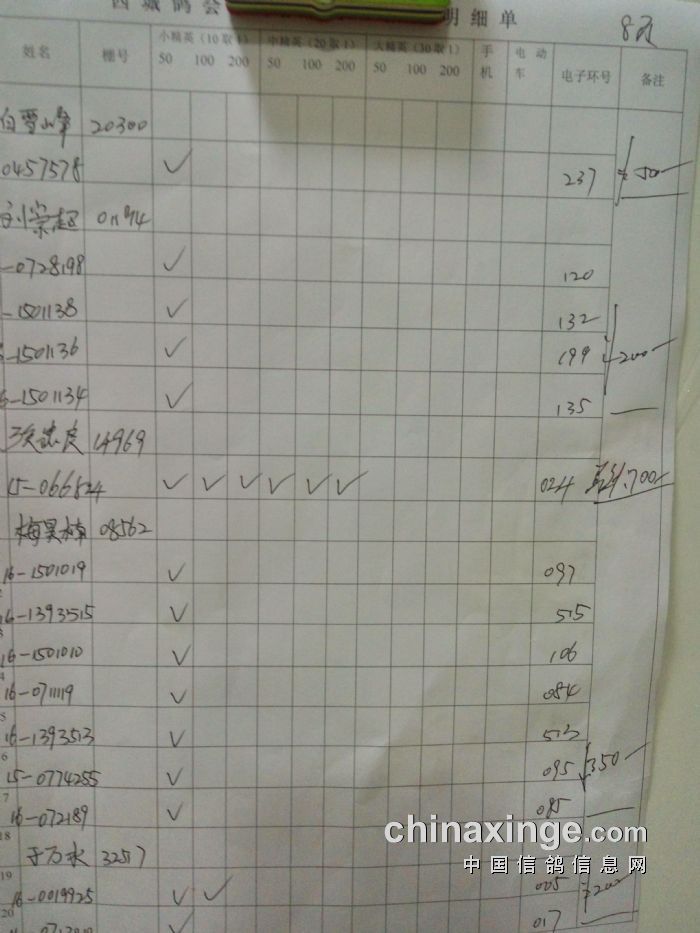 西城鸽会 明细单 8页
姓名 棚号 小精英(10取1) 中精英(20取1) 大精英(30取1) 手机 电动车 电子环号 备注
50 100 200 50 100 200 50 100 200
白雪峰 20300
0457578 ✓ 237 50
刘崇起
-0728198 ✓ 120
-1501138 ✓ 132
-1501136 ✓ 199 200
-1501134 ✓ 135
14969
15-066824 ✓ ✓ ✓ ✓ ✓ ✓ 024 700
梅昊楠 08562
16-1501019 ✓ 097
16-1393515 ✓ 515
16-1501010 ✓ 106
16-071119 ✓ 084
16-1393513 ✓ 513
15-0774255 ✓ 095 350
16-072189 ✓ 085
18 于万水 32517
19 16-0019925 ✓ ✓ 005 200
20 ✓ 017
chinaxinge.com
中国信鸽信息网